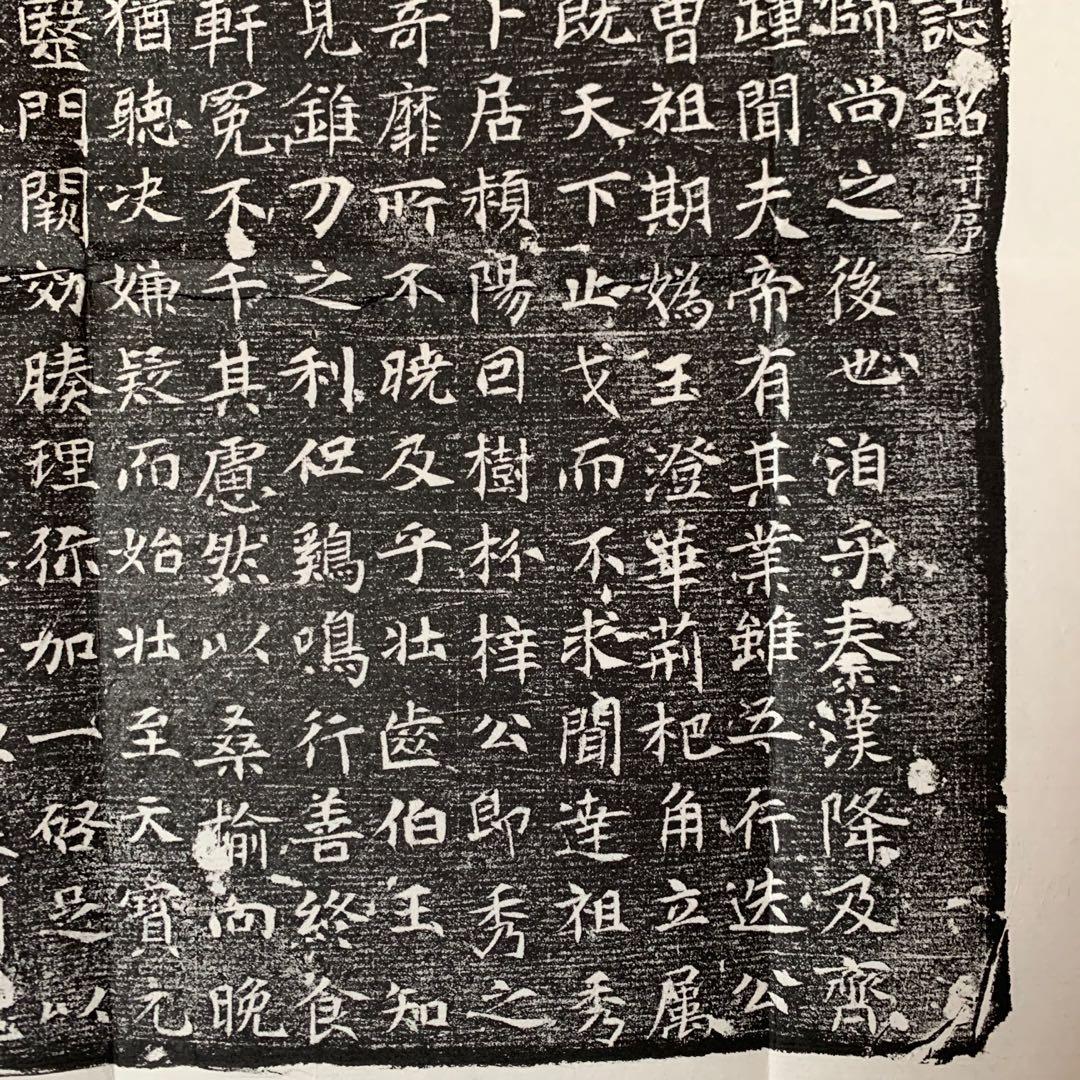 誌銘并序
師尚之後也洎乎秦漢降及齊
踵聞夫帝有其業雖五行迭公
曾祖期嬀王澄華荊杷角立属
既天下止戈而不求聞達祖秀
卜居頼陽回樹枌梓公即秀之
奇靡所不曉及乎壮齒伯王知
見錐刀之利但鷄鳴行善終食
軒冕不干其慮然以桑榆向晚
猶聽决嫌疑而始壮至天寶元
毉門闕効腠理弥加一啓足以